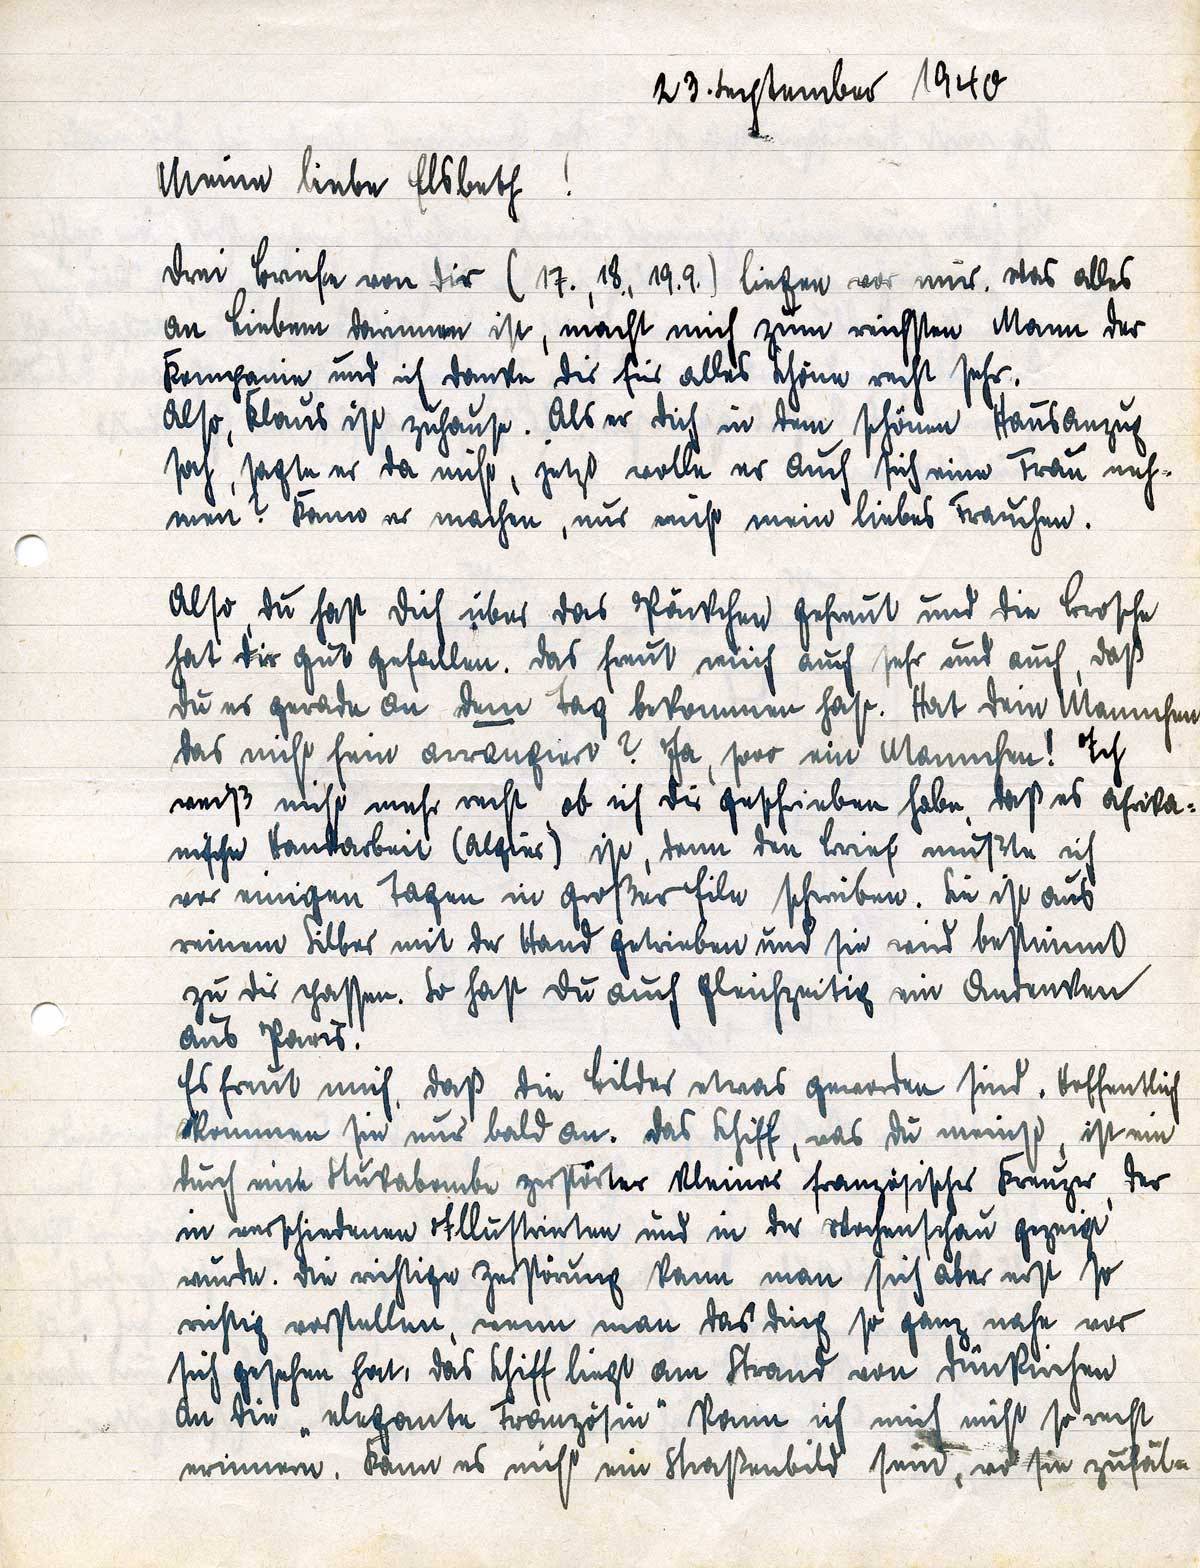 23. September 1940
Meine liebe Elsbeth !
Drei Briefe von Dir ( 17., 18., 19.9.) liegen vor mir. Was alles
an Liebem darinnen ist, macht mich zum reichsten Mann der
Kompanie und ich danke Dir für alles Schöne recht sehr.
Also, Klaus ist zuhause. Als er Dich in dem schönen Hausanzug
sah, sagte er da nicht, jetzt wolle er auch sich eine Frau neh=
men? Kann er machen, nur nicht mein liebes Frauchen.
Also, Du hast Dich über das Päckchen gefreut und die Brosche
hat Dir gut gefallen. Das freut mich auch sehr und auch, daß
Du es gerade an dem Tag bekommen hast. Hat Dein Mannchen
das nicht fein arrangiert? Ja, sooo ein Mannchen! Ich
weiß nicht mehr recht, ob ich Dir geschrieben habe, daß es afrika=
nische Handarbeit (Algier) ist, denn den Brief mußte ich
vor einigen Tagen in großer Eile schreiben. Sie ist aus
reinem Silber mit der Hand getrieben und sie wird bestimmt
zu Dir passen. So hast Du auch gleichzeitig ein Andenken
aus Paris.
Es freut mich, daß die Bilder etwas geworden sind. Hoffentlich
kommen sie nur bald an. Das Schiff, was Du meinst, ist ein
durch eine Stukabombe zerstörter kleiner französischer Kreuzer, der
in verschiedenen Illustrierten und in der Wochenschau gezeigt
wurde. Die richtige Zerstörung kann man sich aber erst so
richtig vorstellen, wenn man das Ding so ganz nahe vor
sich gesehen hat. Das Schiff liegt am Strand von Dünkirchen
An die „elegante Französin" kann ich mich nicht so recht
erinnern. Kann es nicht ein Straßenbild sein, wo sie zufäl=